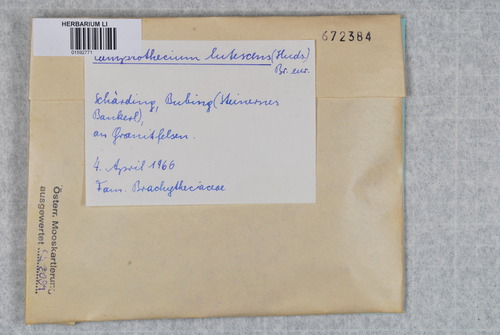 HERBARIUM LI
01592771
672384
Camptothecium lutescens (Huds.)
Br. eur.
Schärding, Bubing (Steinernes
Bankerl),
an Granitfelsen.
4. April 1966
Fam. Brachytheciaceae
Österr. Mooskartierung
ausgewertet